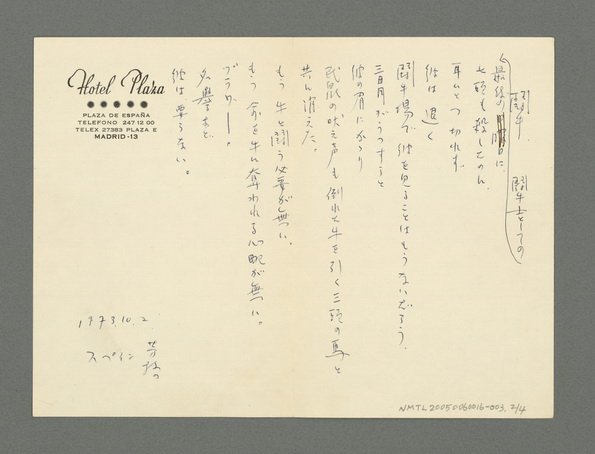 Hotel Plaza
PLAZA DE ESPAÑA
TELEFONO 247 12 00
TELEX 27383 PLAZA E
MADRID-13
闘牛. 闘牛士としての
最後の日に
七頭も殺したのに
耳ひとつ切れず
彼は退く
闘牛場で彼を見ることはもうないだろう.
三日月がうっすらと
彼の眉にかかり
の吠え声も倒れた牛を引く三頭の馬と
共に消えた.
もう牛と闘う必要が無い.
もう命を牛に奪われる心配が無い.
ブラボー.
名誉など
彼は要らない.
1973.10.2.
スペイン
NMTL20050060016-003, 2/4